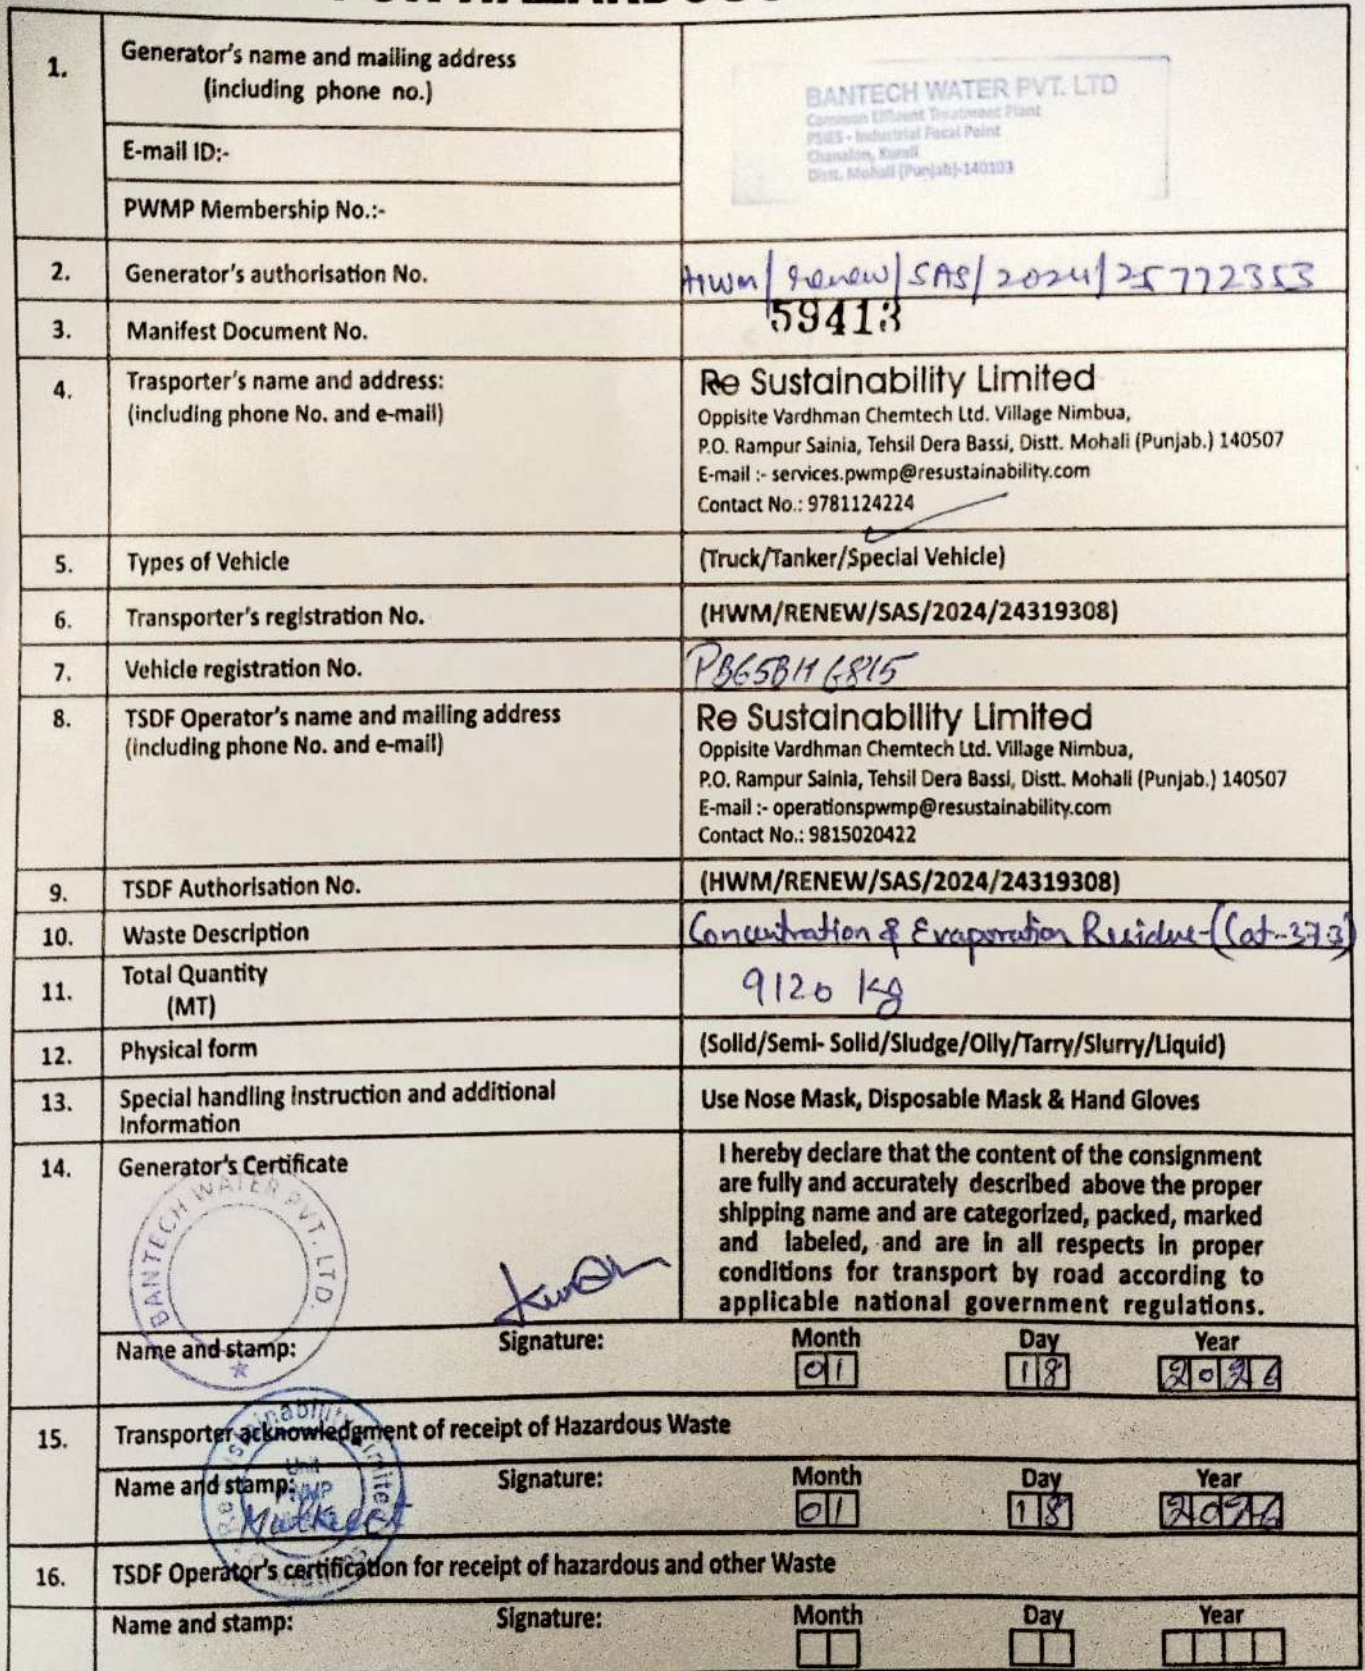 1.
Generator's name and mailing address
(including phone no.)
BANTECH WATER PVT. LTD
Common Effluent Treatment Plant
PSIES - Industrial Focal Point
Chanalon, Kurali
Distt. Mohali (Punjab)-140103
E-mail ID:-
PWMP Membership No.:-
2.
Generator's authorisation No.
HWM/Renew/SAS/2024/25772353
3.
Manifest Document No.
59413
4.
Trasporter's name and address:
(including phone No. and e-mail)
Re Sustainability Limited
Oppisite Vardhman Chemtech Ltd. Village Nimbua,
P.O. Rampur Sainia, Tehsil Dera Bassi, Distt. Mohali (Punjab.) 140507
E-mail :- services.pwmp@resustainability.com
Contact No.: 9781124224
5.
Types of Vehicle
(Truck/Tanker/Special Vehicle)
6.
Transporter's registration No.
(HWM/RENEW/SAS/2024/24319308)
7.
Vehicle registration No.
PB65BH6815
8.
TSDF Operator's name and mailing address
(including phone No. and e-mail)
Re Sustainability Limited
Oppisite Vardhman Chemtech Ltd. Village Nimbua,
P.O. Rampur Sainia, Tehsil Dera Bassi, Distt. Mohali (Punjab.) 140507
E-mail :- operationspwmp@resustainability.com
Contact No.: 9815020422
9.
TSDF Authorisation No.
(HWM/RENEW/SAS/2024/24319308)
10.
Waste Description
Concentration & Evaporation Residue-(Cat-373)
11.
Total Quantity
(MT)
9120 kg
12.
Physical form
(Solid/Semi- Solid/Sludge/Oily/Tarry/Slurry/Liquid)
13.
Special handling instruction and additional
Information
Use Nose Mask, Disposable Mask & Hand Gloves
14.
Generator's Certificate
BANTECH WATER PVT. LTD.
I hereby declare that the content of the consignment
are fully and accurately described above the proper
shipping name and are categorized, packed, marked
and labeled, and are in all respects in proper
conditions for transport by road according to
applicable national government regulations.
Name and stamp:
Signature:
Month
Day
Year
01
18
2026
15.
Transporter acknowledgment of receipt of Hazardous Waste
Name and stamp:
Signature:
Month
Day
Year
01
18
2026
16.
TSDF Operator's certification for receipt of hazardous and other Waste
Name and stamp:
Signature:
Month
Day
Year